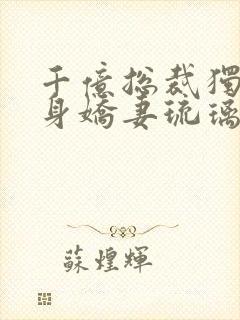 千億總裁獨
身嬌妻琉璃
蘇煌輝